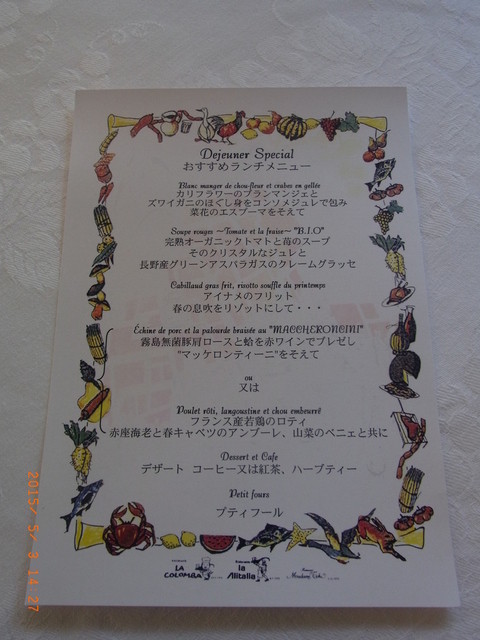 Dejeuner Special
おすすめランチメニュー
Blanc manger de chou-fleur et crabes en gellée
カリフラワーのブランマンジェと
ズワイガニのほぐし身をコンソメジュレで包み
菜花のエスプーマをそえて
Soupe rouges ～Tomate et la fraise～ "B.I.O"
完熟オーガニックトマトと苺のスープ
そのクリスタルなジュレと
長野産グリーンアスパラガスのクレームグラッセ
Cabillaud gras frit, risotto souffle du printemps
アイナメのフリット
春の息吹をリゾットにして・・・
Échine de porc et la palourde braisée au "MACCHERONCINI"
霧島無菌豚肩ロースと蛤を赤ワインでブレゼし
"マッケロンティーニ"をそえて
ou
又は
Poulet rôti, langoustine et chou embeurré
フランス産若鶏のロティ
赤座海老と春キャベツのアンブーレ、山菜のベニェと共に
Dessert et Cafe
デザート コーヒー又は紅茶、ハーブティー
Petit fours
プティフール
LA COLOMBA
la Alitalia
2015/ 5/ 8 14:27